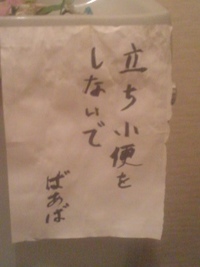 立ち小便を
しないで
ばあば